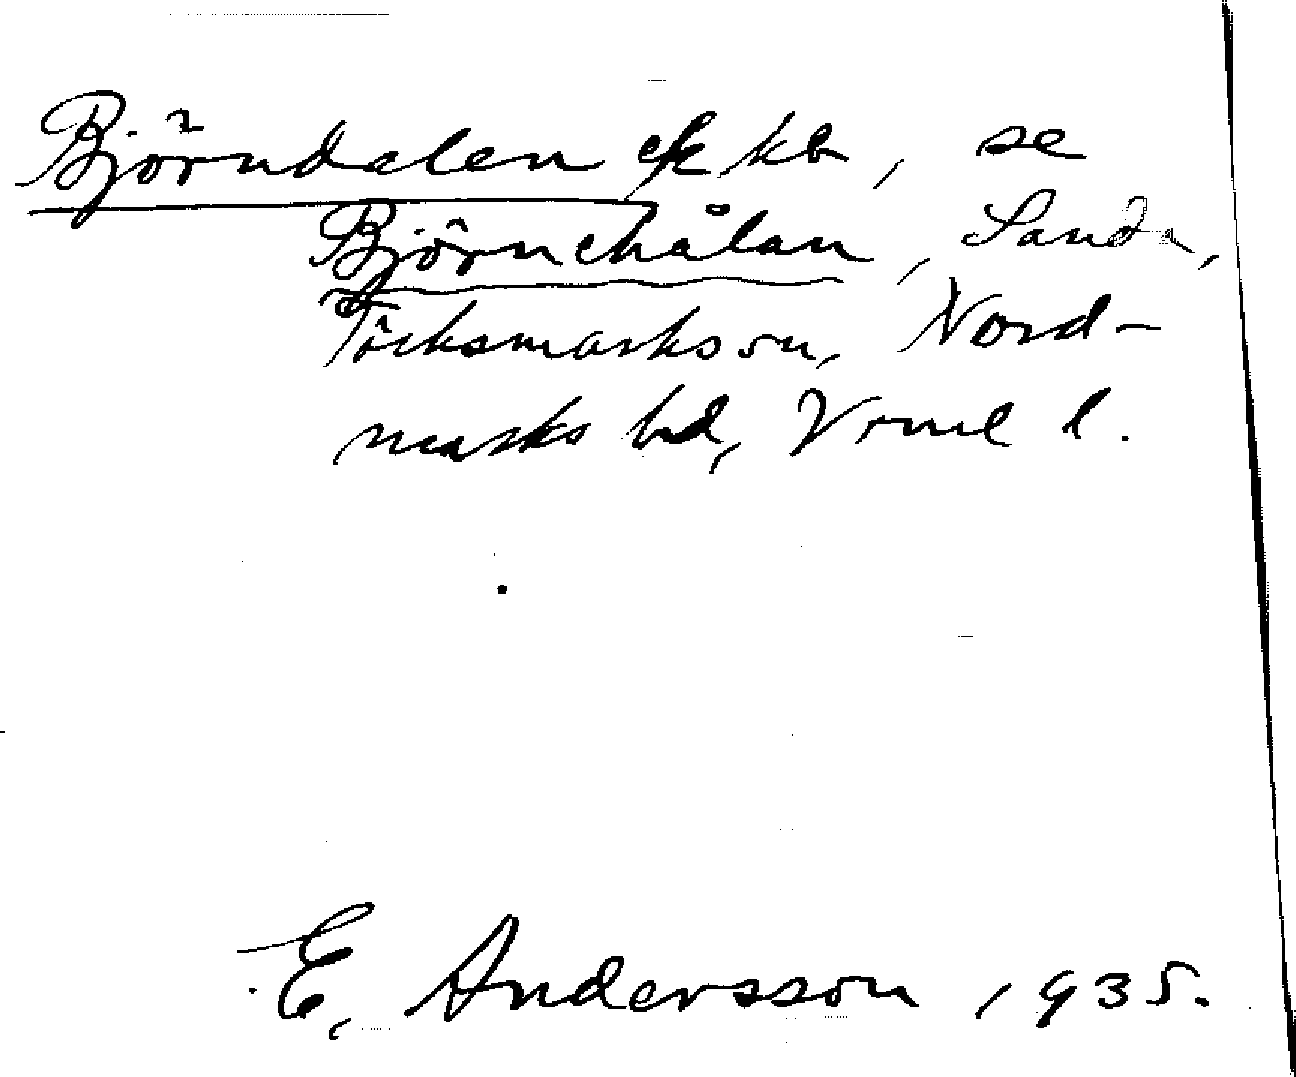 Björndalen ek kb, se
Björnehålan, Sanda,
Töcksmarks sn, Nord-
marks hd, Vrml l.
E. Andersson 1935.